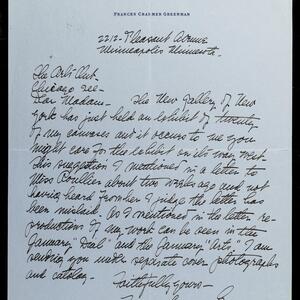 FRANCES CRANMER GREENMAN
2212-Pleasant Avenue
Minneapolis Minnesota-
The Arts Club-
Chicago Ill-
Dear Madam- The New Gallery of New
York has just held an exhibit of twenty
of my canvases and it occurs to me you
might care for the exhibit on its way West-
This suggestion I mentioned in a letter to
Miss Roullier about two weeks ago and not
having heard from her I judge the letter has
been mislaid. As I mentioned in the letter re-
productions of my work can be seen in the
January "Dial" and the January "Arts," I am
sending you under separate cover photographs
and catalog-
Faithfully yours-